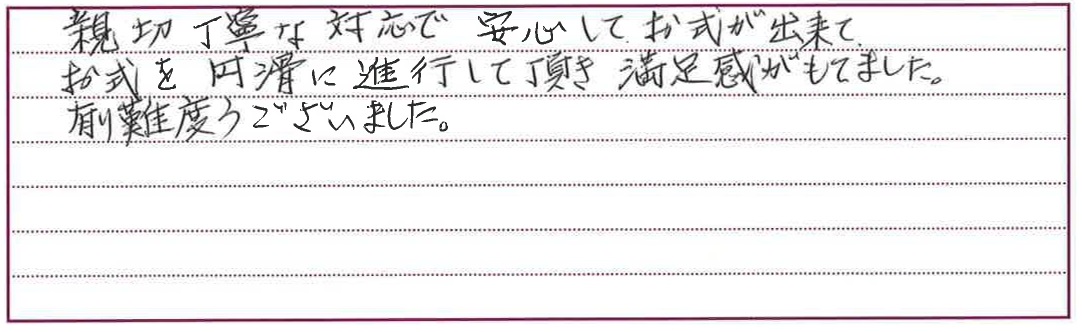 親切丁寧な対応で 安心して お式が出来て
お式を 円滑に 進行して頂き 満足感がもてました。
有難度うございました。